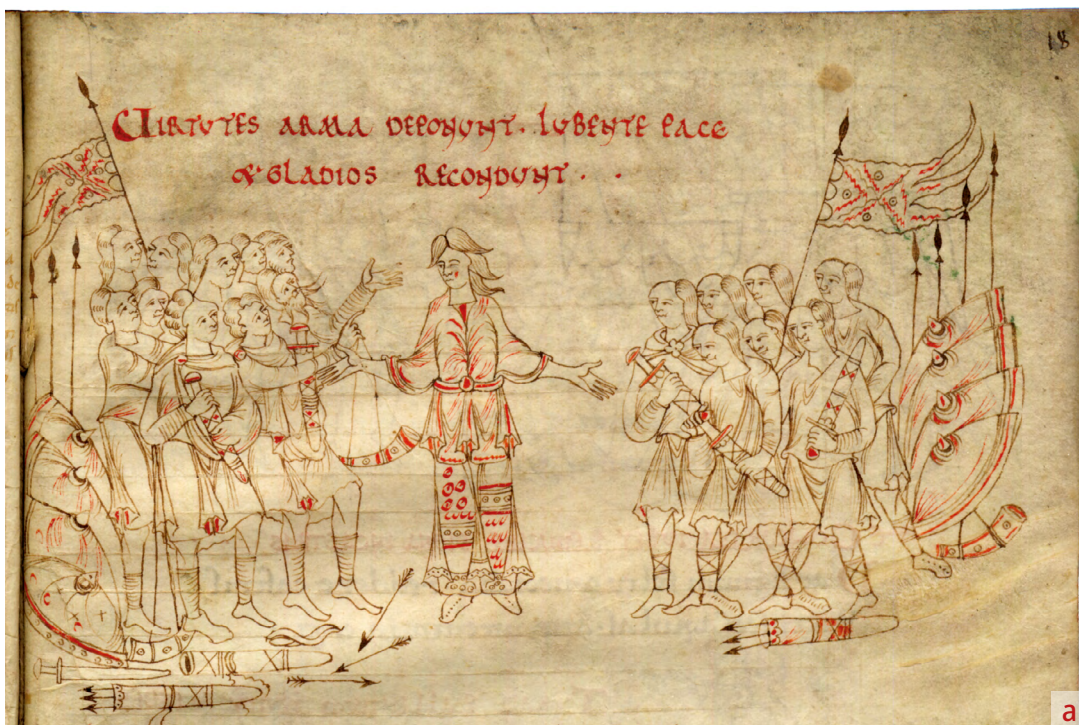 18
VIRTUTES ARMA DEPONUNT. IUBENTE PACE
& GLADIOS RECONDUNT. .
a